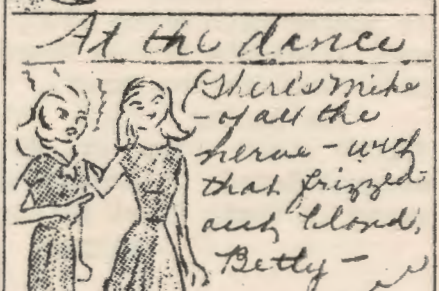 At the dance
There's Mike
- of all the
nerve - with
that frizzed-
out blond,
Betty -